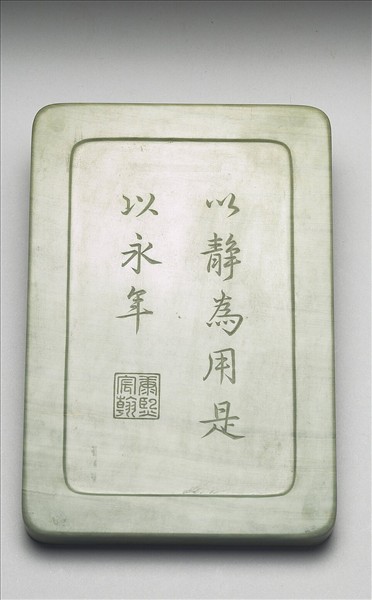 以静為用是
以永年
康熙宸翰